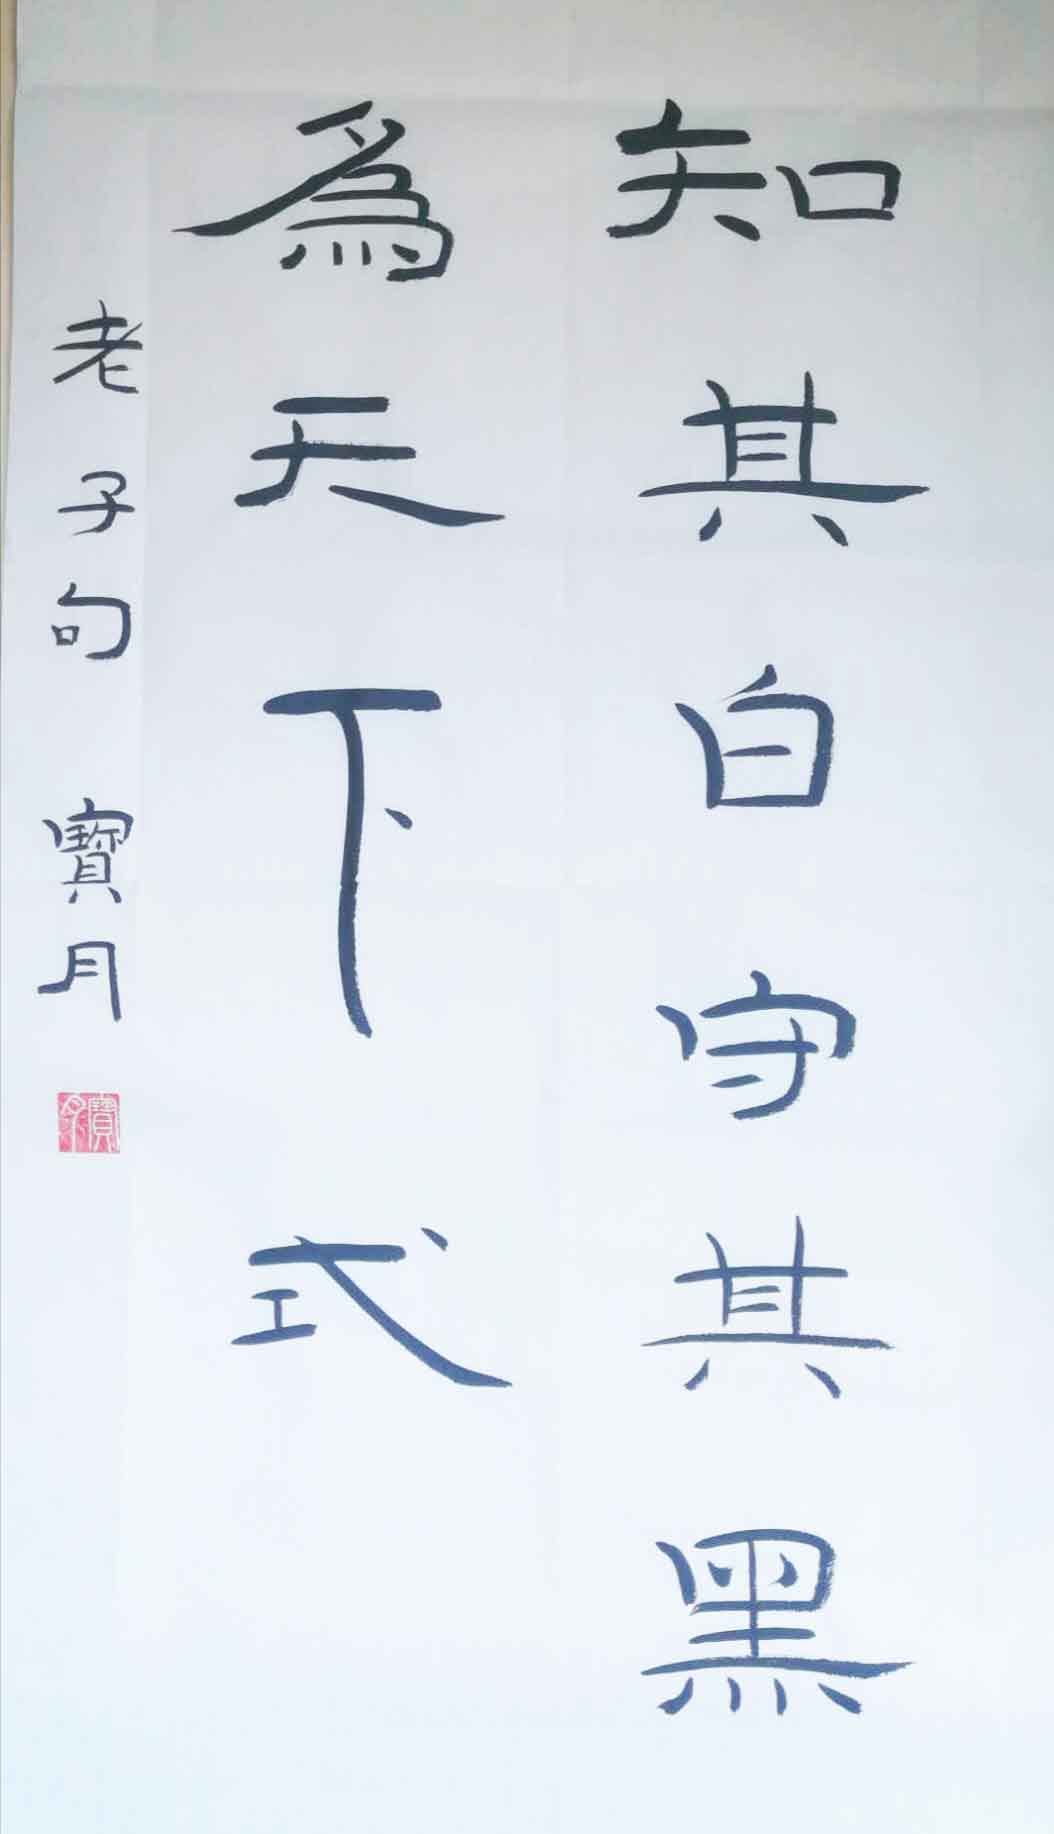 知其白守其黑
為天下式
老子句 寶月
寶月